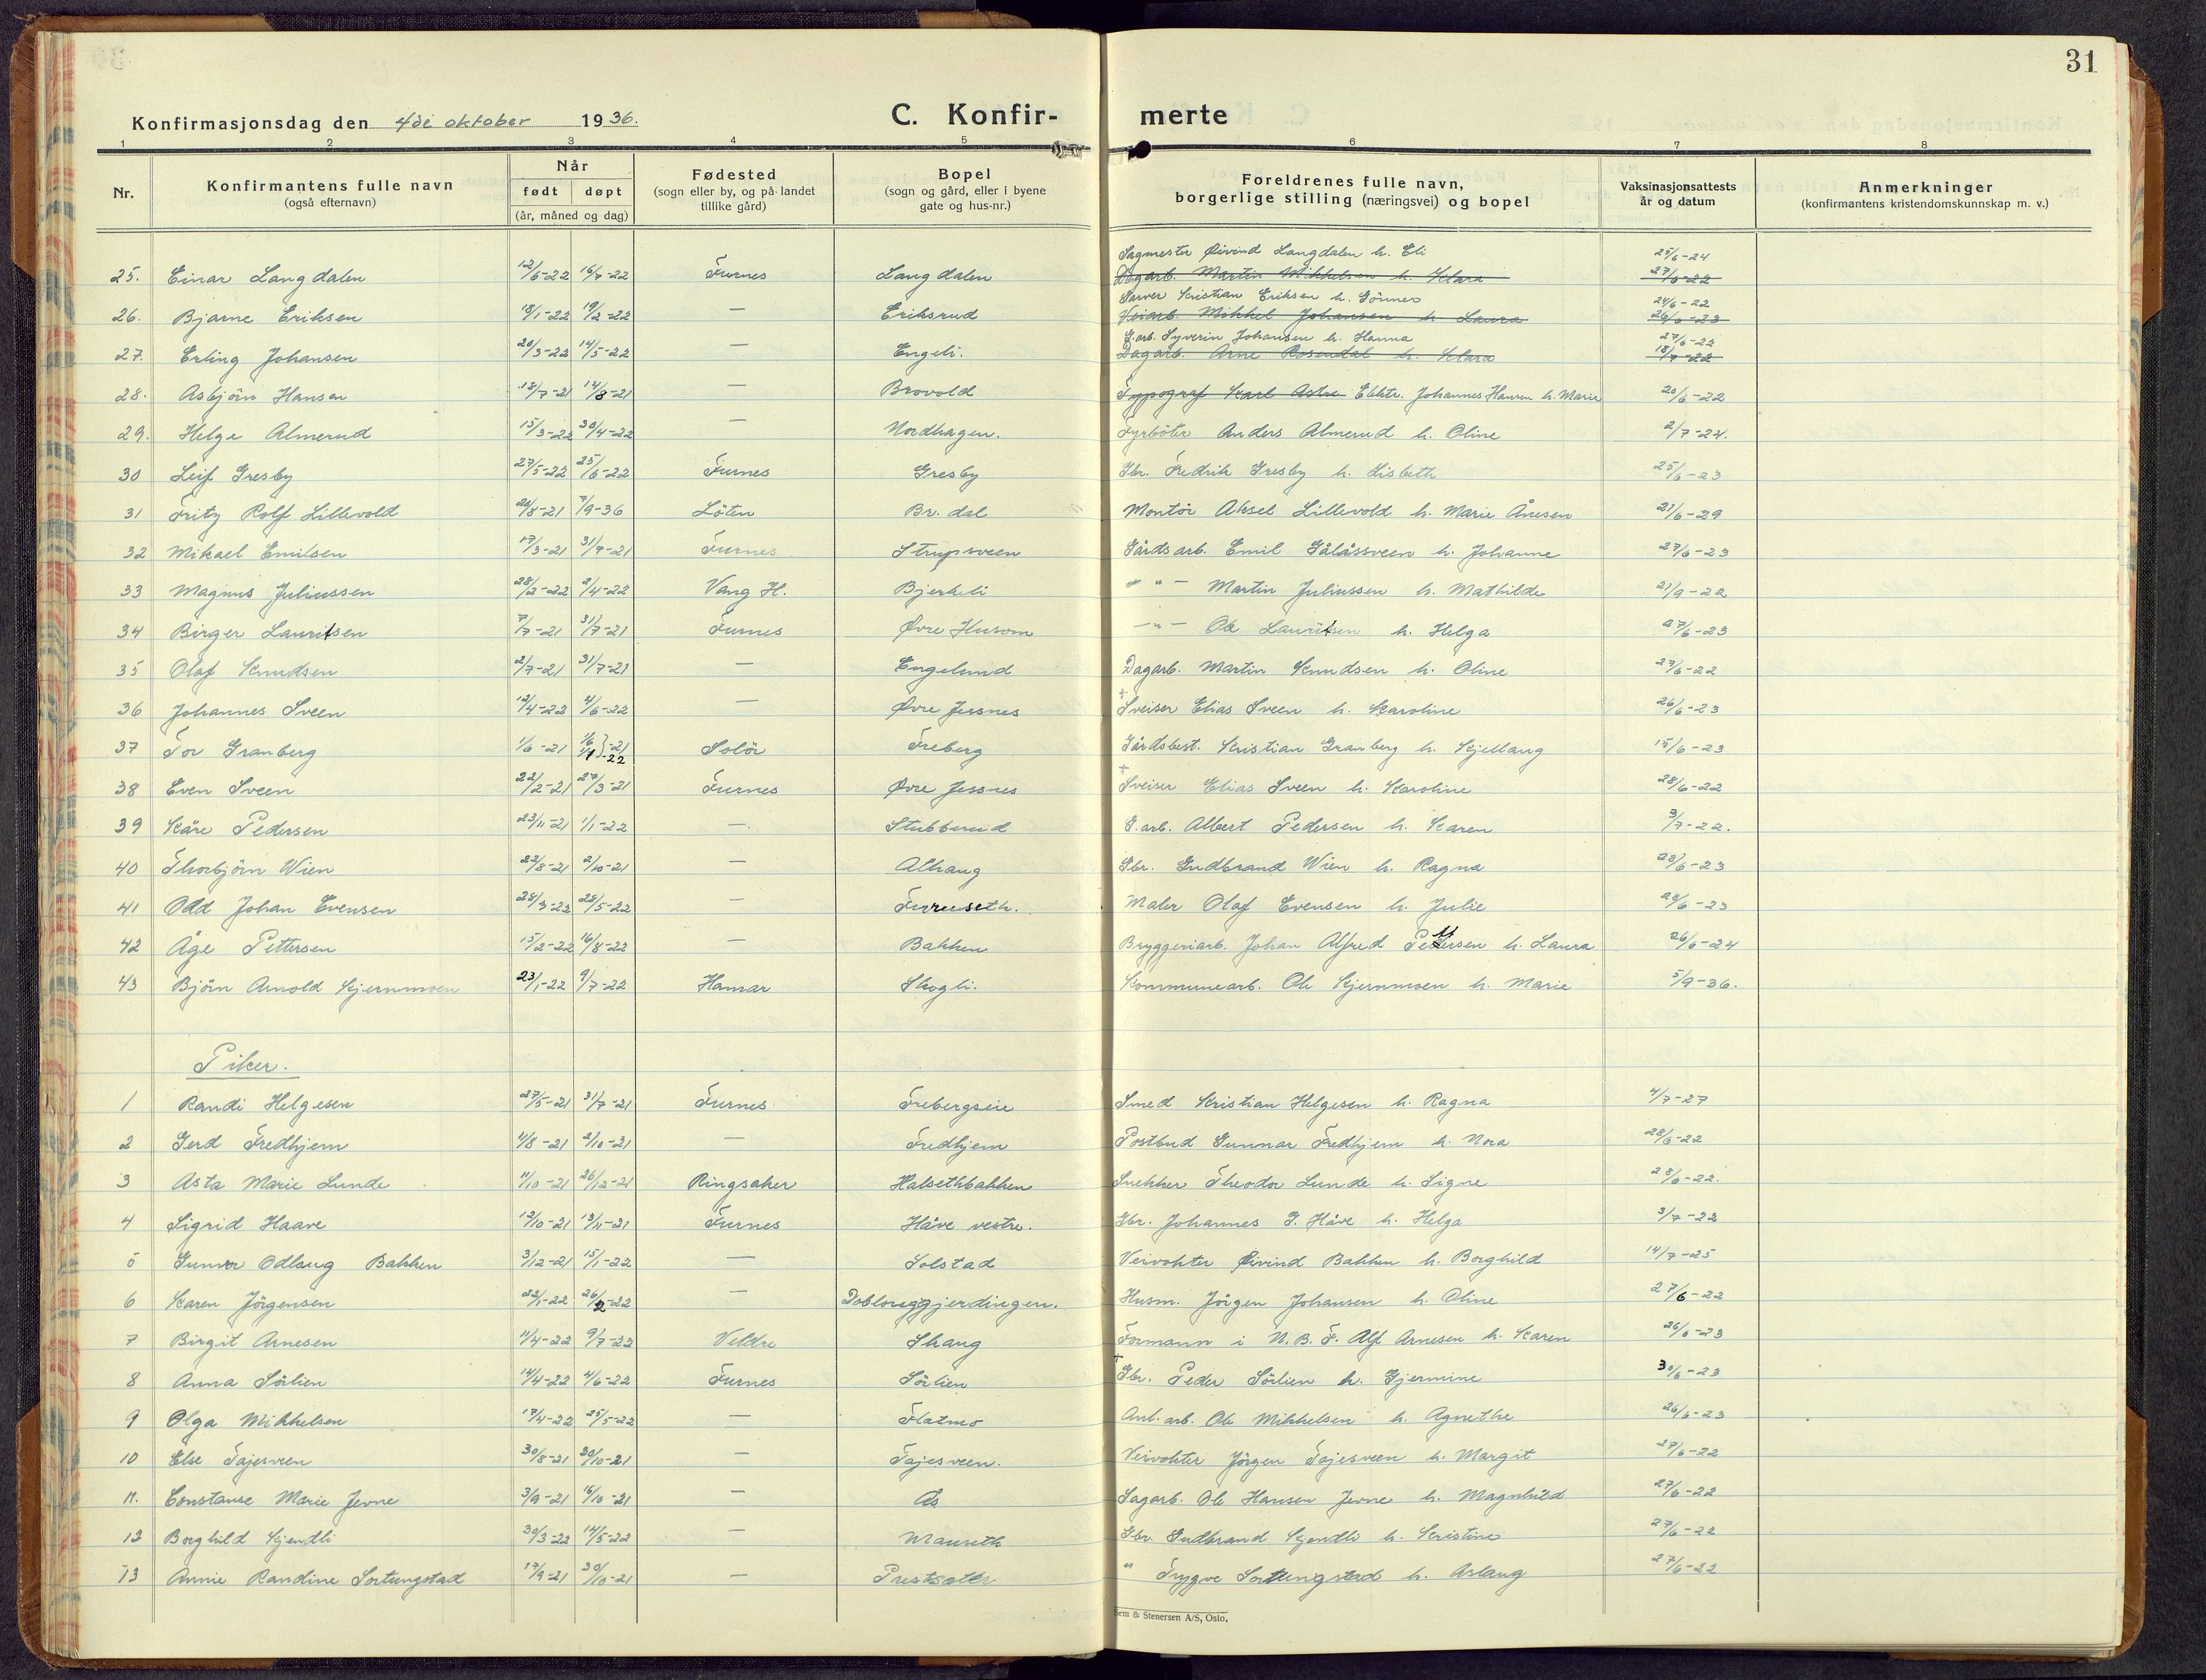 31
Konfirmasjonsdag den 4de oktober 1936.
C. Konfir-
merte
1 2 3 4 5 6 7 8
Nr.
Konfirmantens fulle navn
(også efternavn)
Når
født døpt
(år, måned og dag)
Fødested
(sogn eller by, og på landet
tillike gård)
Bopel
(sogn og gård, eller i byene
gate og hus-nr.)
Foreldrenes fulle navn,
borgerlige stilling (næringsvei) og bopel
Vaksinasjonsattests
år og datum
Anmerkninger
(konfirmantens kristendomskunnskap m. v.)
Sagmester Øivind Langdalen h. Eli 25/6-24
25. Einar Langdalen 12/6-22 16/7-22 Furnes Langdalen Dagarb. Martin Mikkelsen h. Klara 27/6-22
Kristian Eriksen h. Gönner 24/6-22
26. Bjarne Eriksen 18/1-22 19/2-22 — Eriksrud Veiarb. Mikkel Johansen h. Laura 26/6-23
G.arb. Syverin Johansen h. Hanna 27/6-22
27. Erling Johansen 20/3-22 14/5-22 — Engeli. Dagarb. Arne Rosendal h. Klara 18/7-22
28. Asbjörn Hansen 18/7-21 14/8-21 — Brovold Typograf Karl Astru Elektr. Johannes Hansen h. Marie 20/6-22
29. Helge Almerud 15/3-22 30/4-22 — Nordhagen. Fyrböter Anders Almerud h. Oline 2/7-24.
30 Leif Gresby 27/5-22 25/6-22 Furnes Gresby Gbr. Fredrik Gresby h. Lisbeth 25/6-23
31 Fritz Rolf Lillevold 28/8-21 7/9-36 Löten Br. dal Montör Aksel Lillevold h. Marie Ånesen 21/6-29
32 Mikael Emilsen 17/3-21 31/7-21 Furnes Strupsveen Gårdsarb. Emil Gålåssveen h. Johanne 27/6-23
33 Magnus Juliussen 28/2-22 2/4-22 Vang H. Bjerkeli — " — Martin Juliussen h. Mathilde 21/9-22
34 Birger Lauritsen 7/7-21 31/7-21 Furnes Øvre Husom — " — Ole Lauritsen h. Helga 27/6-23
35 Olaf Knudsen 2/7-21 31/7-21 — Engelund Dagarb. Martin Knudsen h. Oline 27/6-22
36 Johannes Sveen 12/4-22 4/6-22 — Øvre Jessnes + Sveiser Elias Sveen h. Karoline 26/6-23
37 Tor Granberg 1/6-21 1/6-21 1/1-22 Solör Freberg Gårdsbest. Kristian Granberg h. Kjellaug 15/6-23
38 Even Sveen 22/2-21 27/3-21 Furnes Øvre Jessnes + Sveiser Elias Sveen h. Karoline 28/6-22
39 Kåre Pedersen 23/11-21 1/1-22 — Stubberud G.arb. Albert Pedersen h. Karen 3/7-22.
40 Thorbjörn Wien 22/8-21 2/10-21 — Alhaug Gbr. Gudbrand Wien h. Ragna 28/6-23
41 Odd Johan Evensen 28/3-22 28/5-22 — Furuseth. Maler Olaf Evensen h. Julie 28/6-23
42 Åge Pettersen 15/2-22 16/8-22 — Bakken Bryggeriarb. Johan Alfred Pettersen h. Laura 26/6-24
43 Björn Arnold Kjernmoen 23/1-22 9/7-22 Hamar Skogli. Kommunearb. Ole Kjernmoen h. Marie 5/9-36.
Piker.
1 Randi Helgesen 27/5-21 31/7-21 Furnes Frebergseie Smed Kristian Helgesen h. Ragna 4/7-27
2 Gerd Fredhjem 11/8-21 2/10-21 — Fredhjem Postbud Gunnar Fredhjem h. Nora 28/6-22
3 Asta Marie Lunde 11/10-21 26/12-21 Ringsaker Halsethbakken Snekker Theodor Lunde h. Signe 28/6-22.
4 Sigrid Haave 12/10-21 13/11-21 Furnes Håve vestre. Gbr. Johannes G. Håve h. Helga 3/7-22
5 Gunvor Odlaug Bakken 3/12-21 15/1-22 — Solstad Veivokter Øivind Bakken h. Borghild 14/7-25
6 Karen Jörgensen 22/1-22 26/2-22 — Dobloug­gjerdingen. Husm. Jörgen Johansen h. Oline 27/6-22
7 Birgit Arnesen 11/4-22 9/7-22 Veldre Skaug Formann i N.B.F. Alf Arnesen h. Karen 26/6-23
8 Anna Sörlien 14/4-22 4/6-22 Furnes Sörlien + Gbr. Peder Sörlien h. Gjermine 30/6-23
9 Olga Mikkelsen 17/4-22 25/5-22 — Flatmo Anl.arb. Ole Mikkelsen h. Agnethe 26/6-23
10 Else Tajesveen 30/8-21 30/10-21 — Tajesveen. Veivokter Jörgen Tajesveen h. Margit 27/6-22
11. Constanse Marie Jevne 3/9-21 16/10-21 — Ås Sagarb. Ole Hansen Jevne h. Magnhild 27/6-22
12 Borghild Kjendli 30/3-22 14/5-22 — Mauseth Gbr. Gudbrand Kjendli h. Kristine 27/6-22
13 Annie Randine Sortungstad 17/9-21 30/10-21 — Prestsæter " Trygve Sortungstad h. Aslaug 27/6-22
Sem & Stenersen A/S, Oslo.